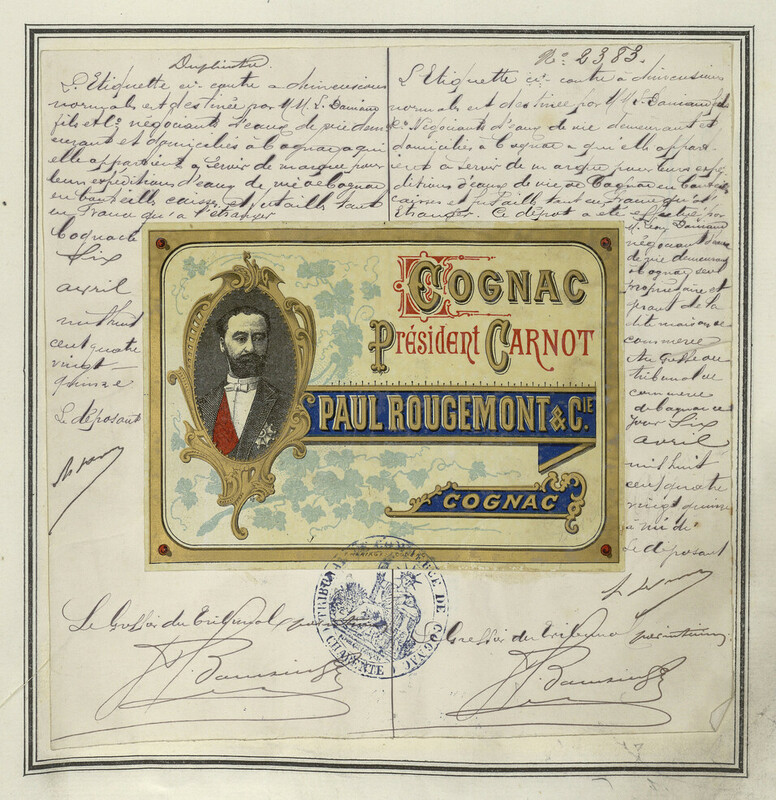 Duplicata.
L'Etiquette ci-contre a dimensions
normales est destinée par MM. L. Damiand
fils et Cie négociants d'eaux de vie demeurant
et domiciliés à Cognac a qui
elle appartient a servir de marque pour
leurs expéditions d'eaux de vie de Cognac
en bouteilles caisses et futailles tant
en France qu'à l'étranger
Cognac le
Six
avril
mil huit
cent quatre
vingt-
quinze
Le déposant
No. 2383.
L'Etiquette ci-contre à dimensions
normales est destinée par MM. L. Damiand fils
& Cie Négociants d'eaux de vie demeurant et
domiciliés à Cognac a qui elle appartient
a servir de marque pour leurs expéditions
d'eaux de vie de Cognac en bouteilles
caisses et futailles tant en France qu'à l'
étranger. Ce dépôt a été effectué par
M. Damiand
négociant d'eaux
de vie demeurant
à Cognac seul
propriétaire et
gérant de la
dite maison de
commerce
Au Greffe du
tribunal de
commerce
de Cognac ce
jour Six
avril
mil huit
cent quatre
vingt quinze
à midi
Le déposant
COGNAC
Président CARNOT
PAUL ROUGEMONT & CIE
COGNAC
TRIBUNAL DE COMMERCE DE COGNAC
CHARENTE
Le Greffier du Tribunal
Le Greffier du tribunal